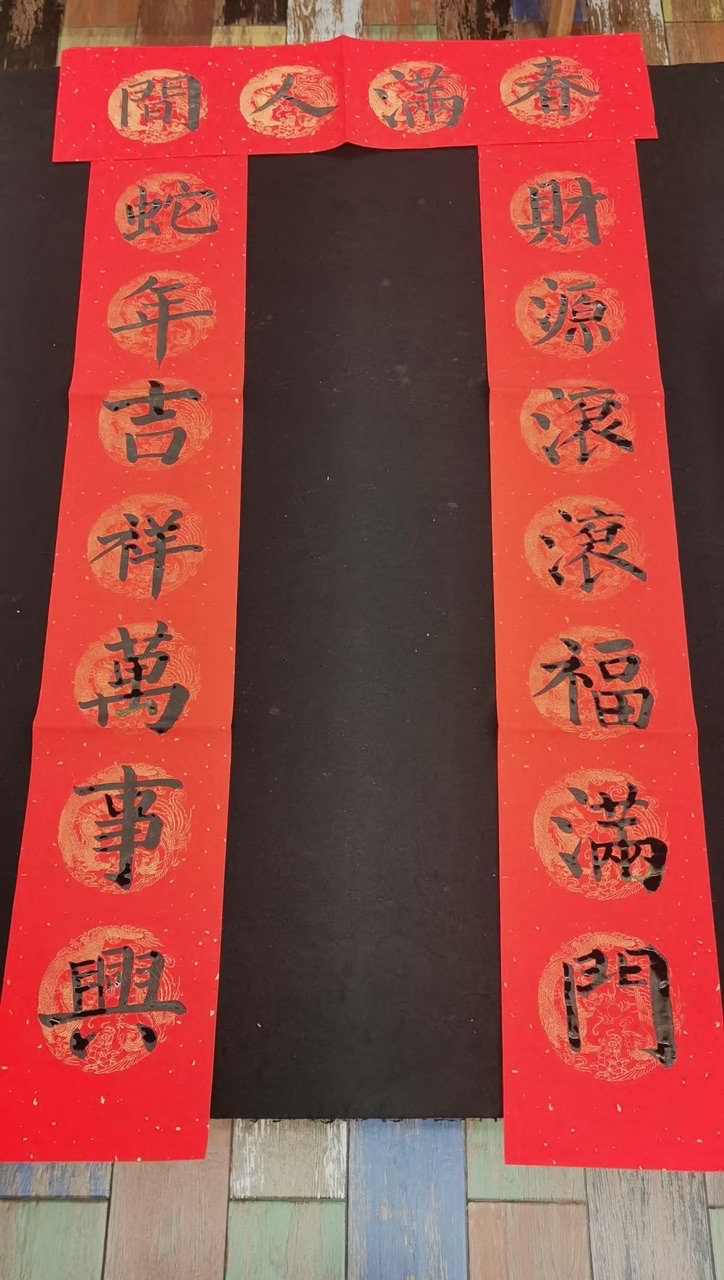 春滿人間
財源滾滾福滿門
蛇年吉祥萬事興